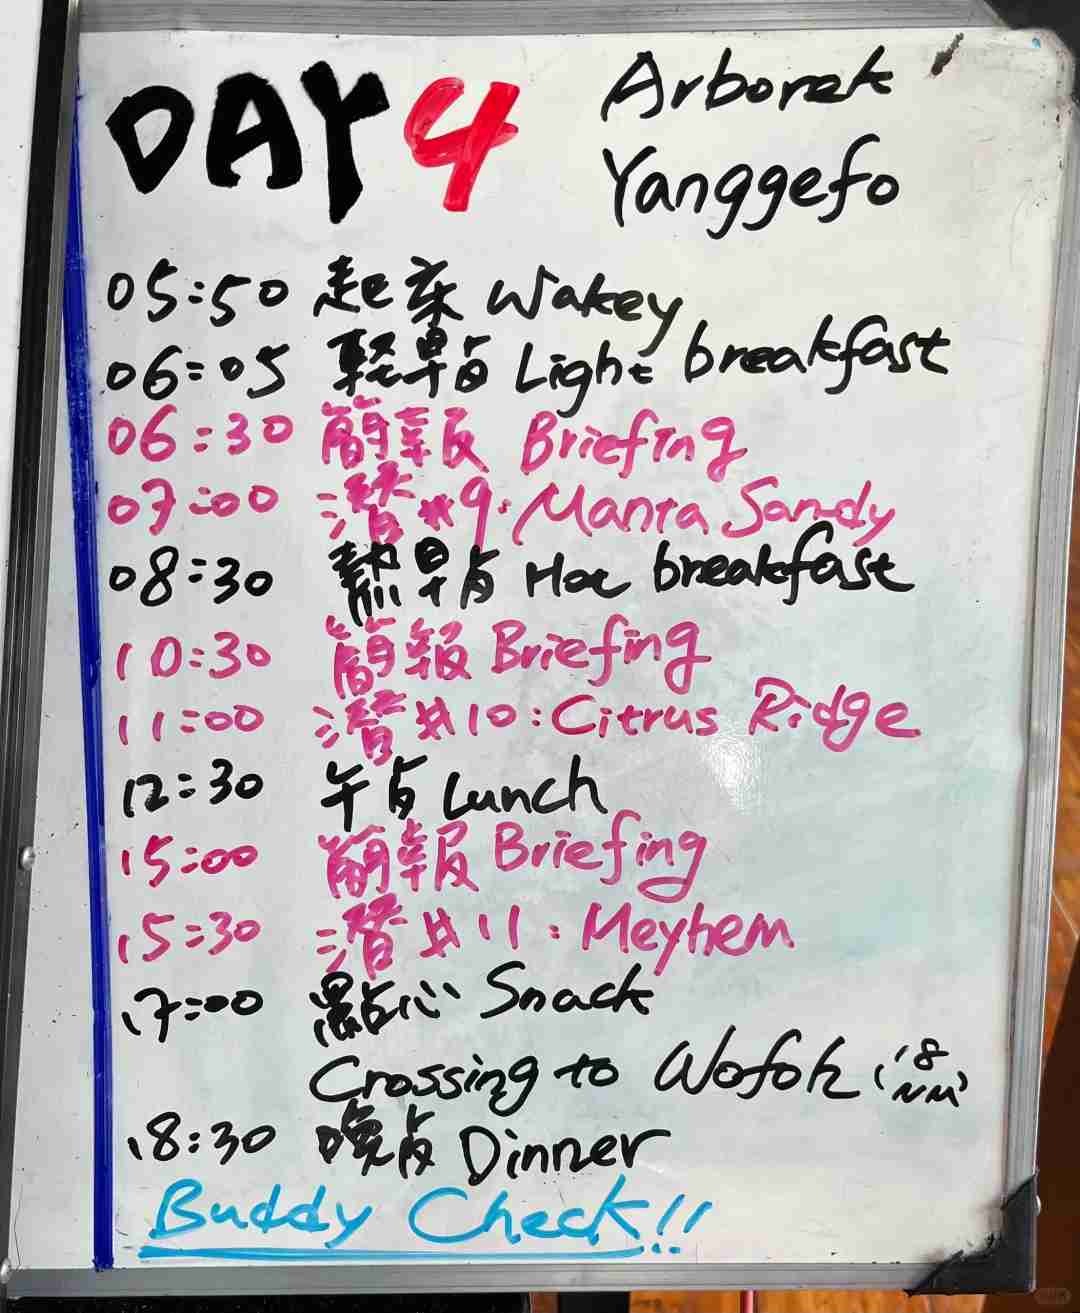 DAY 4
Arborek
Yanggefo
05:50 起床 Wakey
06:05 輕早食 Light breakfast
06:30 簡報 Briefing
07:00 潛#9: Manta Sandy
08:30 熱早食 Hot breakfast
10:30 簡報 Briefing
11:00 潛#10: Citrus Ridge
12:30 午食 Lunch
15:00 簡報 Briefing
15:30 潛#11: Meyhem
17:00 點心 Snack
Crossing to Wofoh (18 NM)
18:30 晚食 Dinner
Buddy Check!!